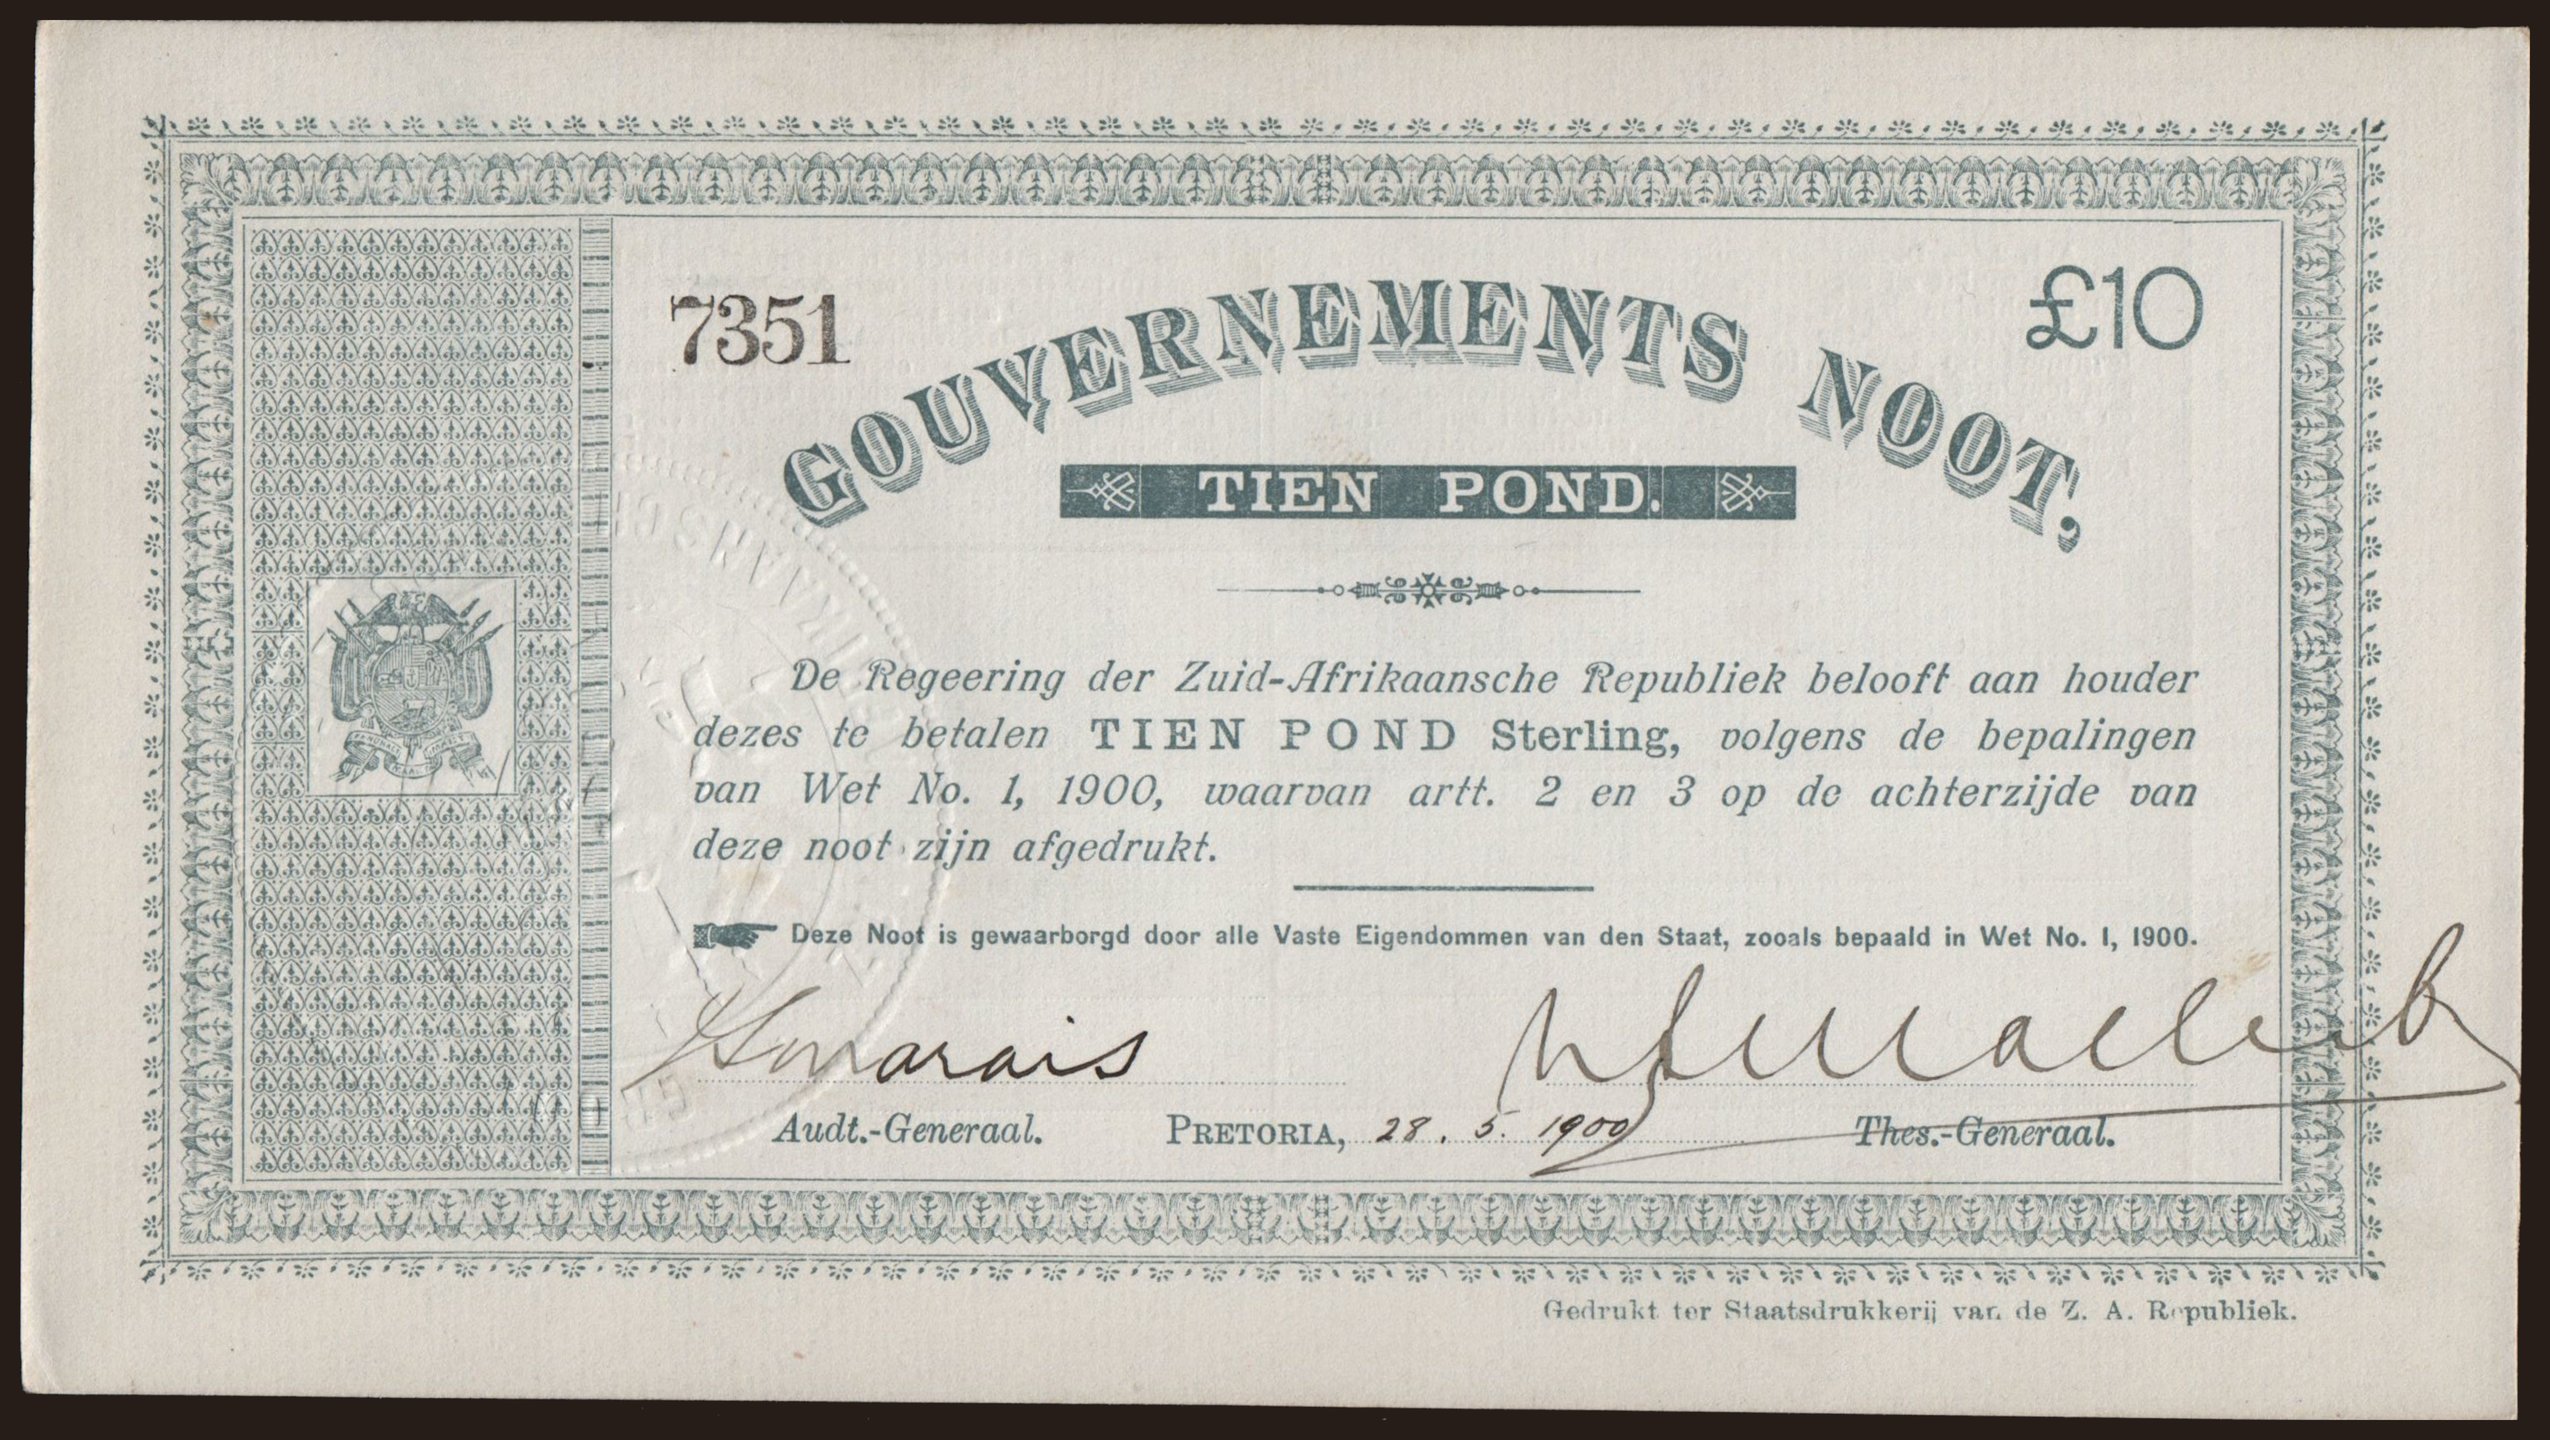 7351
£10
GOUVERNEMENTS NOOT,
TIEN POND.
De Regeering der Zuid-Afrikaansche Republiek belooft aan houder
dezes te betalen TIEN POND Sterling, volgens de bepalingen
van Wet No. 1, 1900, waarvan artt. 2 en 3 op de achterzijde van
deze noot zijn afgedrukt.
Deze Noot is gewaarborgd door alle Vaste Eigendommen van den Staat, zooals bepaald in Wet No. 1, 1900.
Marais
Audt.-Generaal. PRETORIA, 28. 5. 1900 Thes.-Generaal.
Gedrukt ter Staatsdrukkerij van de Z. A. Republiek.